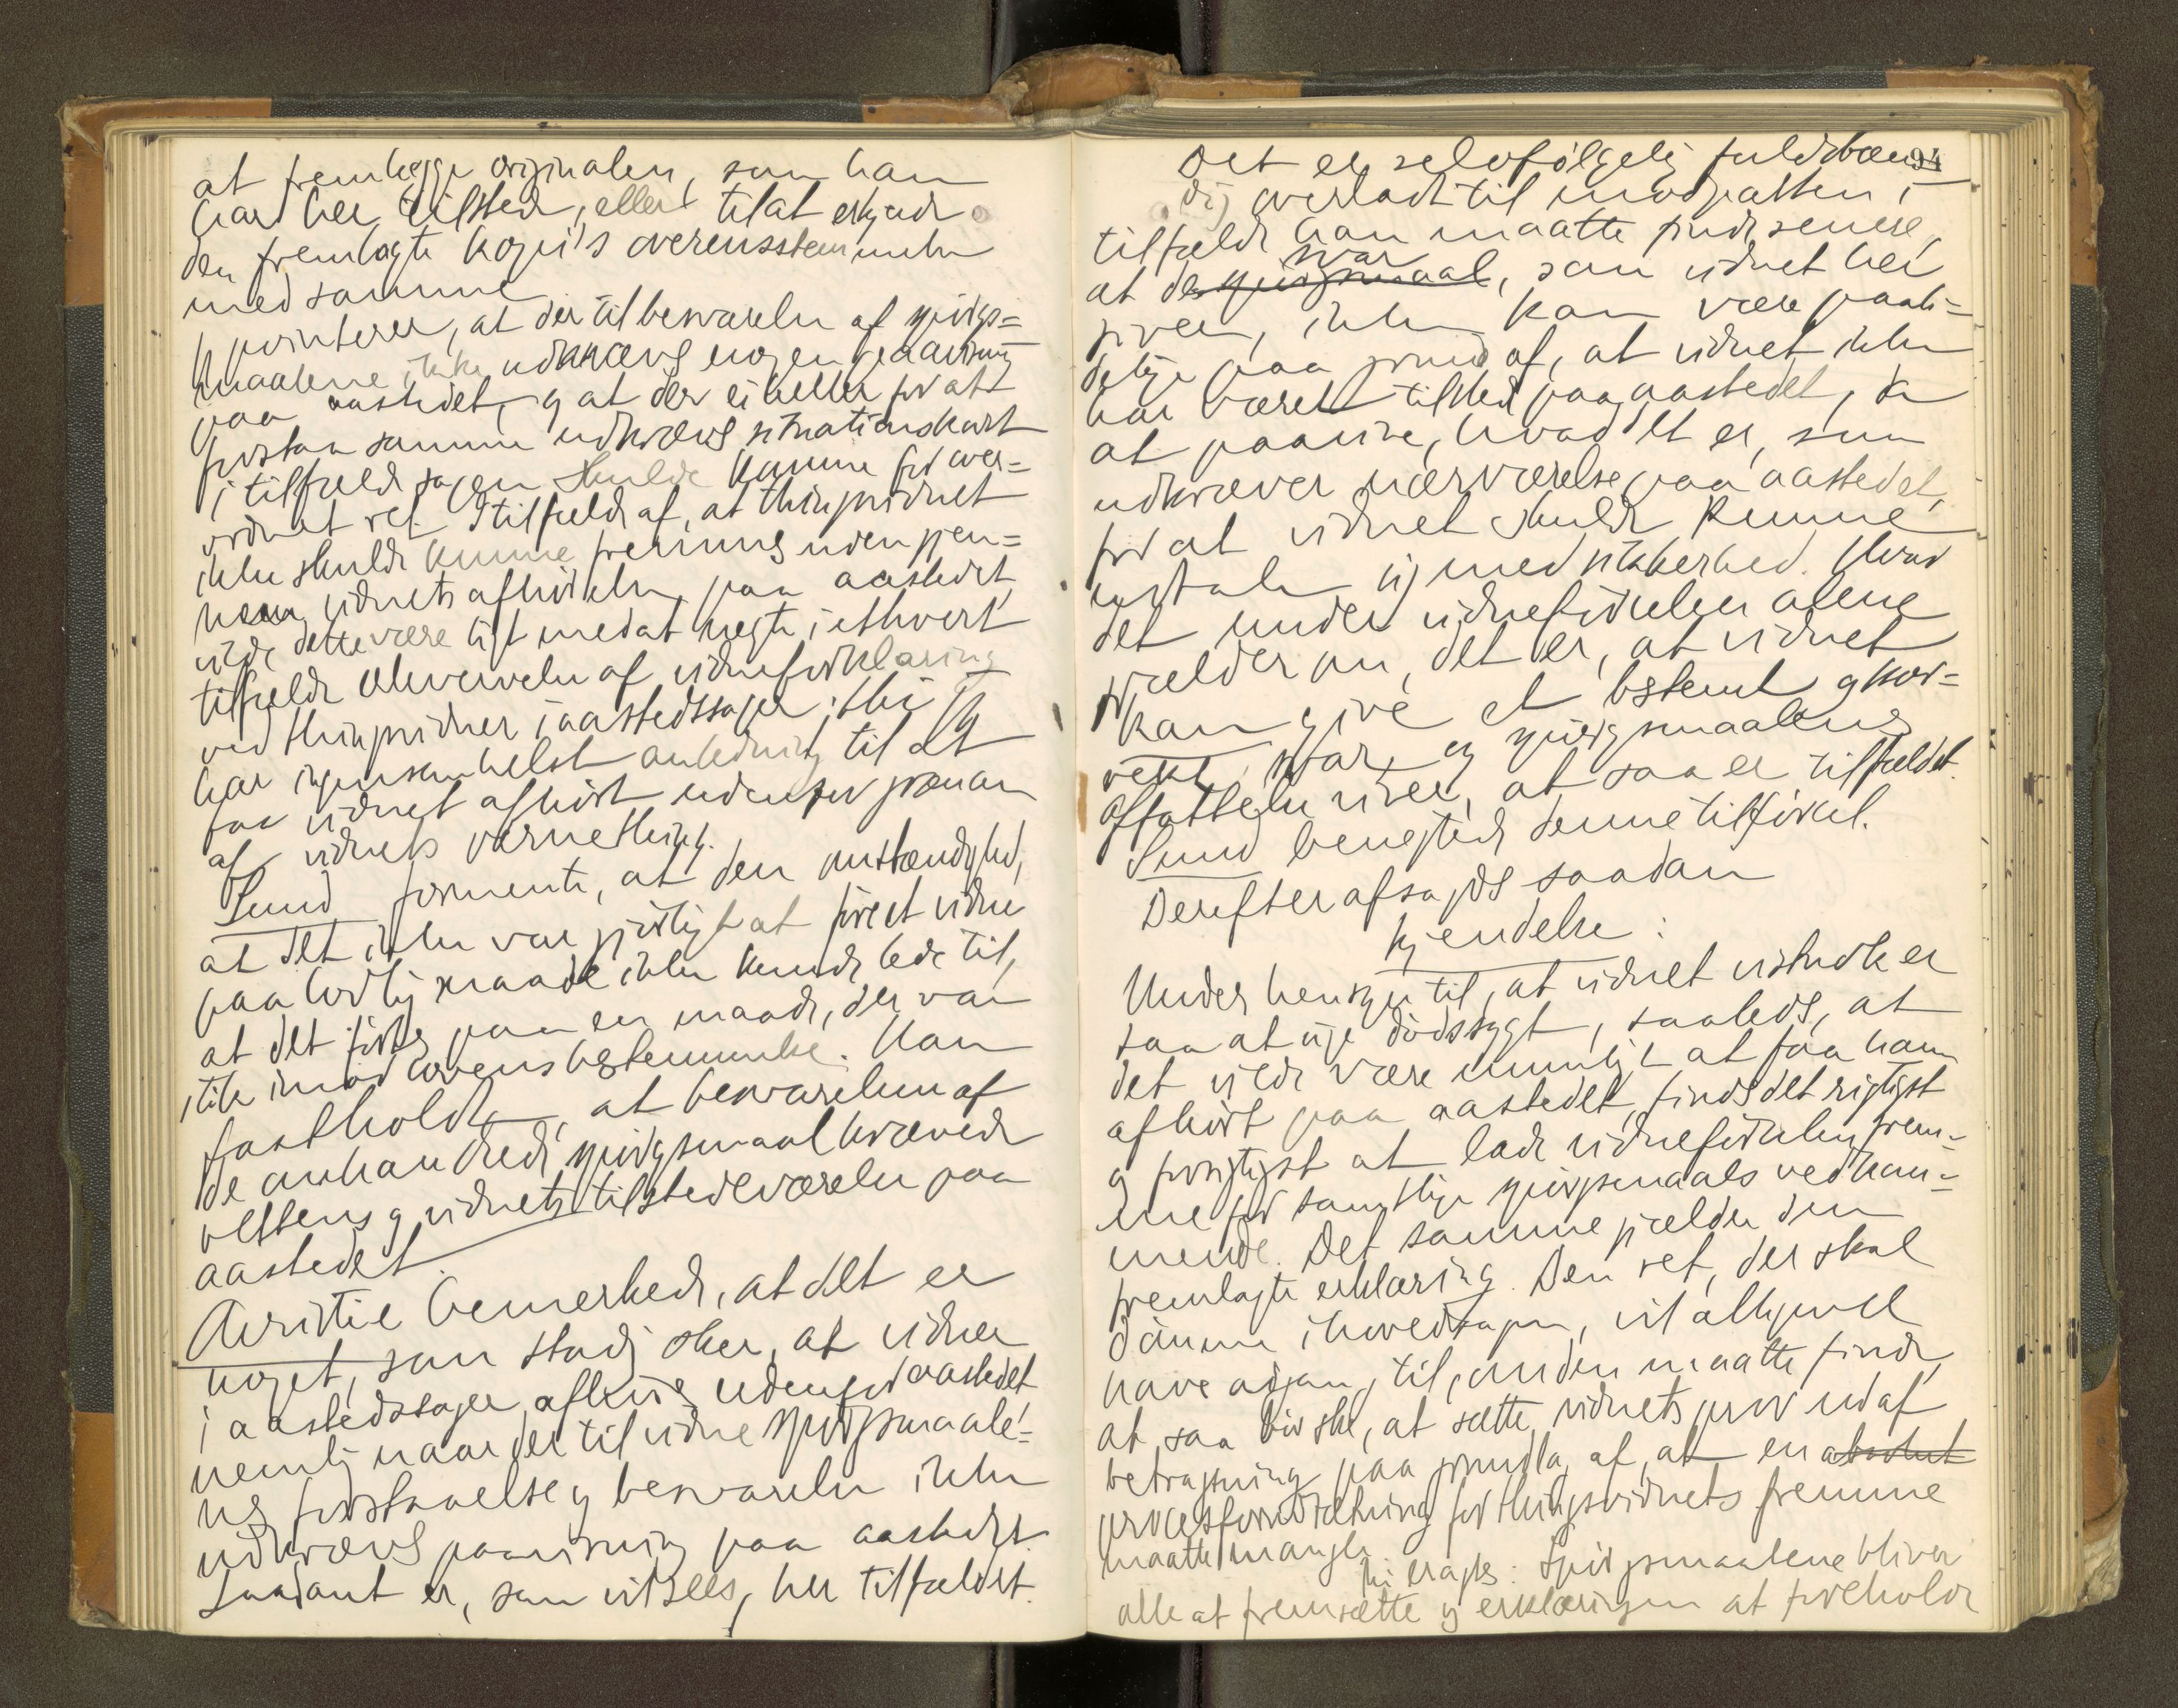 at fremlægge originalen, som han
har her tilstede, eller til at erkjende
den fremlagte kopi's overensstemmelse
med samme.
pointerer, at der til besvarelse af spörgs=
maalene ikke udkræves nogen paavisning
paa aastedet, og at der ei heller for at
forstaa samme udkræves situationskart
i tilfælde sagen skulde komme for over=
ordnet ret. I tilfælde af, at thingsvidnet
ikke skulde kunne fremmes uden gjen=
nem vidnets afhörelse paa aastedet
vilde dette være ligt med at negte i ethvert
tilfælde erhvervelse af vidneforklaring
ved thingsvidner i aastedssager; thi jeg
har ingensomhelst anledning til at
faa vidnet afhört udenfor grænsen
af vidnets værnething.
Lund formente, at den omstændighed,
at det ikke var gjörligt at före et vidne
paa lovlig maade ikke kunde lede til,
at det förtes paa en maade, der var
stik imod lovens bestemmelse. Han
fastholdt, at besvarelsen af
de omhandlede spörgsmaal krævede
rettens og vidnets tilstedeværelse paa
aastedet.
Christie bemerkede, at det er
noget, som stadig sker, at vidner
i aastedssager afhöres udenfor aastedet
nemlig naar der til vidnespörgsmaale=
nes forstaaelse og besvarelse ikke
udkræves paavisning paa aastedet.
Saadant er, som vil sees, her tilfældet.
94
Det er selvfölgelig fuldstæn=
dig overladt til modparten, i
tilfælde han maatte finde senere,
at de spörgsmaal svar, som vidnet her
giver, ikke kan være paali=
delige paa grund af, at vidnet ikke
har været tilsted paa aastedet, da
at paavise, hvad det er, som
udkræver nærværelse paa aastedet,
for at vidnet skulde kunne
udtale sig med sikkerhed. Hvad
det under vidneförselen alene
gjælder om, det er, at vidnet
kan give et bestemt og kor=
rekt svar, og spörgsmaalenes
affattelse viser, at saa er tilfældet.
Lund benegtede denne tilförsel.
Derefter afsagdes saadan
kjendelse:
Under hensyn til, at vidnet vistnok er
saa at sige dödssygt, saaledes, at
det vilde være umuligt at faa ham
afhört paa aastedet, findes det rigtigst
og forsigtigst at lade vidneförselen frem=
me for samtlige spörgsmaals vedkom=
mende. Det samme gjælder den
fremlagte erklæring. Den ret, der skal
dömme i hovedsagen, vil alligevel
have adgang til, om den maatte finde,
at saa bör ske, at sætte vidnets prov ud af
betragtning paa grundlag af, at en absolut
procesforudsætning for thingsvidnets fremme
maatte mangle.
Thi eragtes: Spörgsmaalene bliver
alle at fremsætte og erklæringen at foreholde